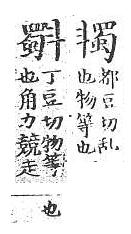 都豆切乱
也物等也
斣
丁豆切物等
也角力競走
也